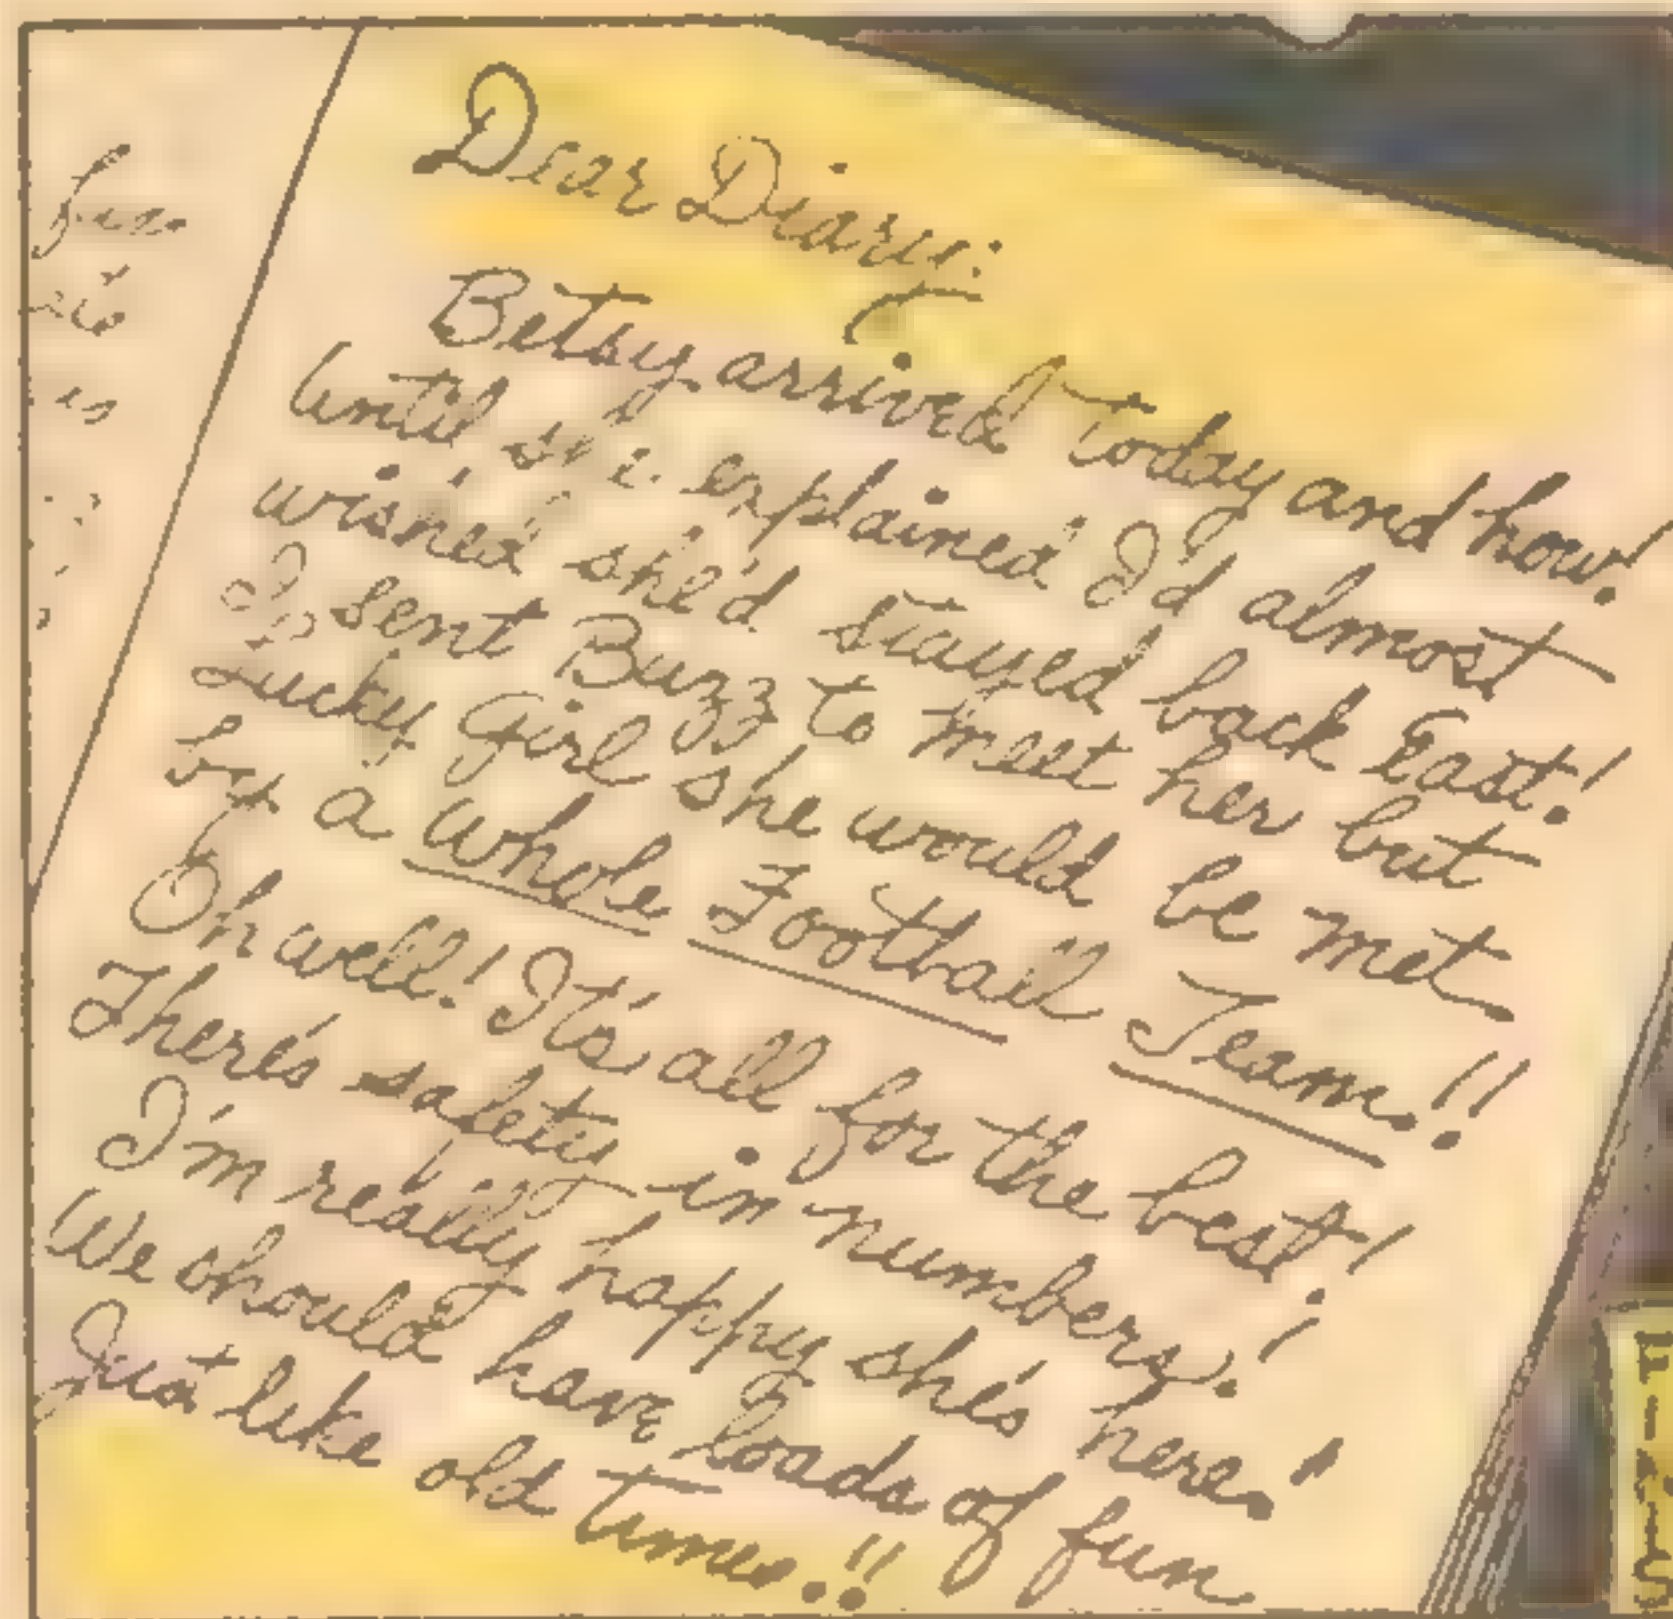 fun
Dear Diary:
Betsy arrived today and how!
Until she explained I'd almost
wished she'd stayed back East!
I sent Buzz to meet her but
Lucky Girl she would be met
by a whole Football Team!!
Oh well! It's all for the best!
There's safety in numbers!
I'm really happy she's here!
We should have loads of fun
Just like old times!!